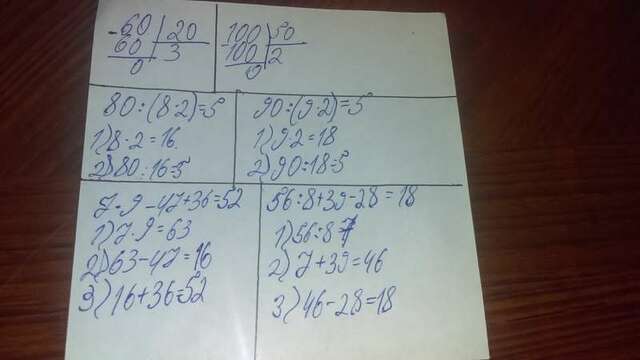 -60 | 20
60 | 3
0
100 | 50
100 | 2
0
80:(8·2)=5
1) 8·2=16.
2) 80:16=5
90:(9·2)=5
1) 9·2=18
2) 90:18=5
7·9-47+36=52
1) 7·9=63
2) 63-47=16
3) 16+36=52
56:8+39-28=18
1) 56:8=7
2) 7+39=46
3) 46-28=18